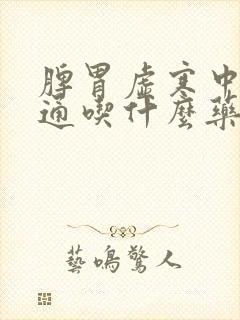 脾胃虚寒中
通喫什麼藥
藝鳴驚人